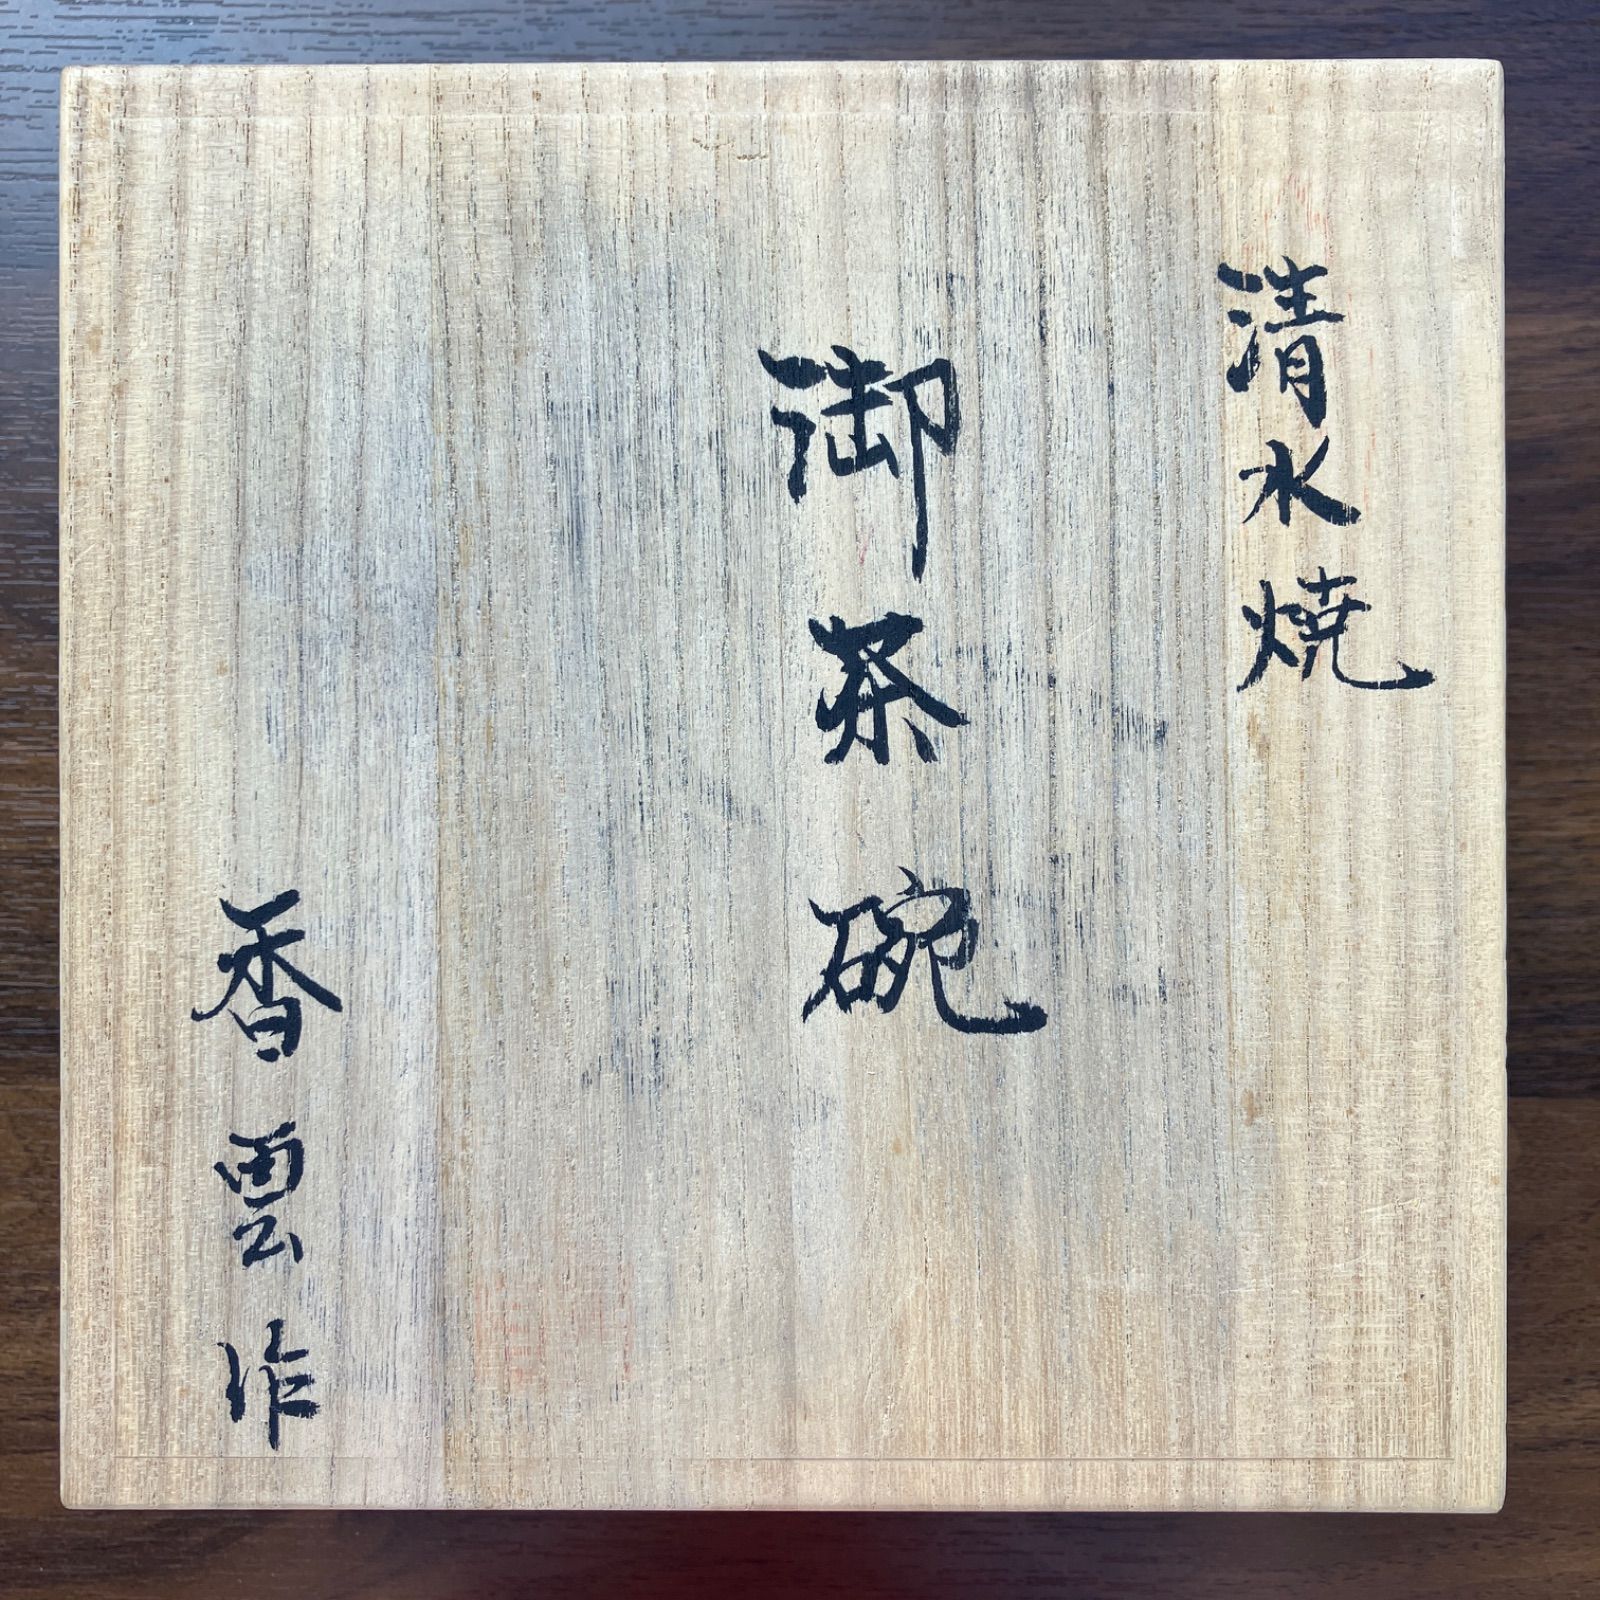 清水焼
御茶碗
香雲作